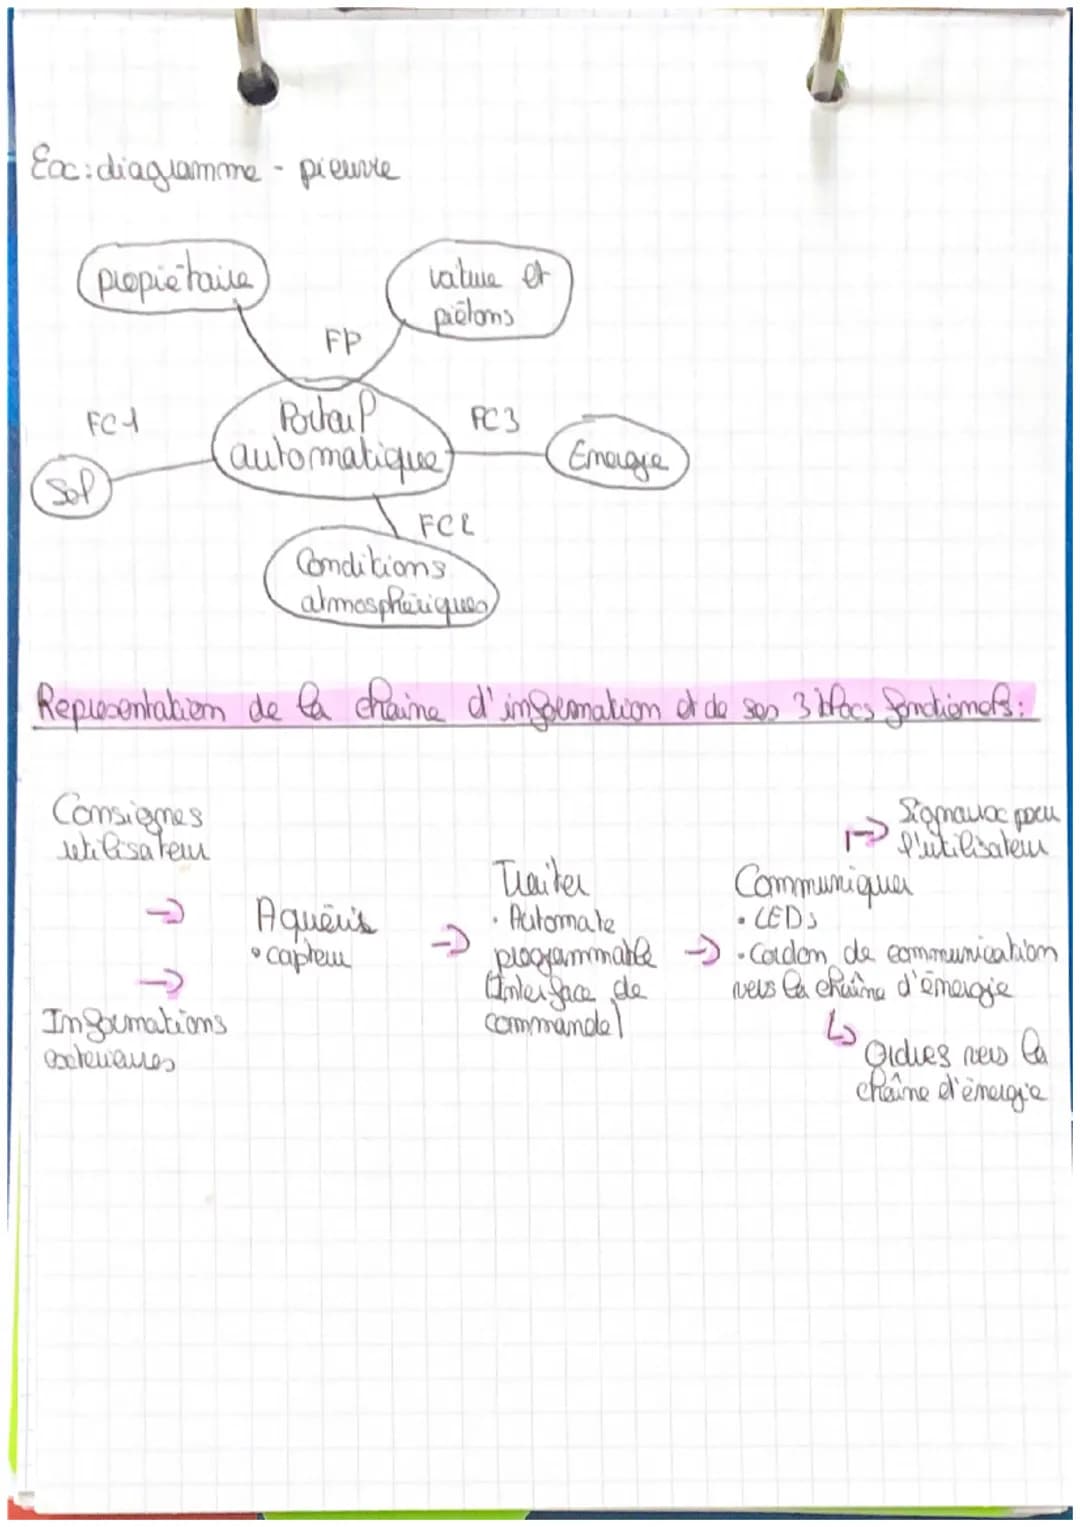 Ex: diagramme - pieuvre
propiétaire
voiture et
piétons
FP
FC1
Portail
automatique
FC3
Sol
Energie
FC2
Conditions
atmosphériques
Representation de la chaine d'information et de ses 3 blocs fonctionels:
Consignes
utilisateur
→
→
Informations
exterieures
Aquérir
• capteur
→
Traiter
• Automate
programmable
(Interface de
commande)
→
→ Signaux pour
l'utilisateur
Communiquer
• LEDs
• Cordon de communication
vers la chaîne d'énergie
↳ Ordres vers la
chaîne d'énergie